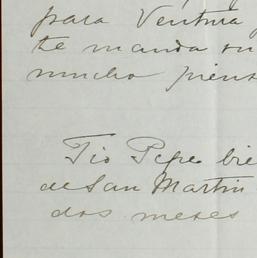 para Ventura
te manda un
mucho piens
Tio Pepe bie
de San Martin
dos meses